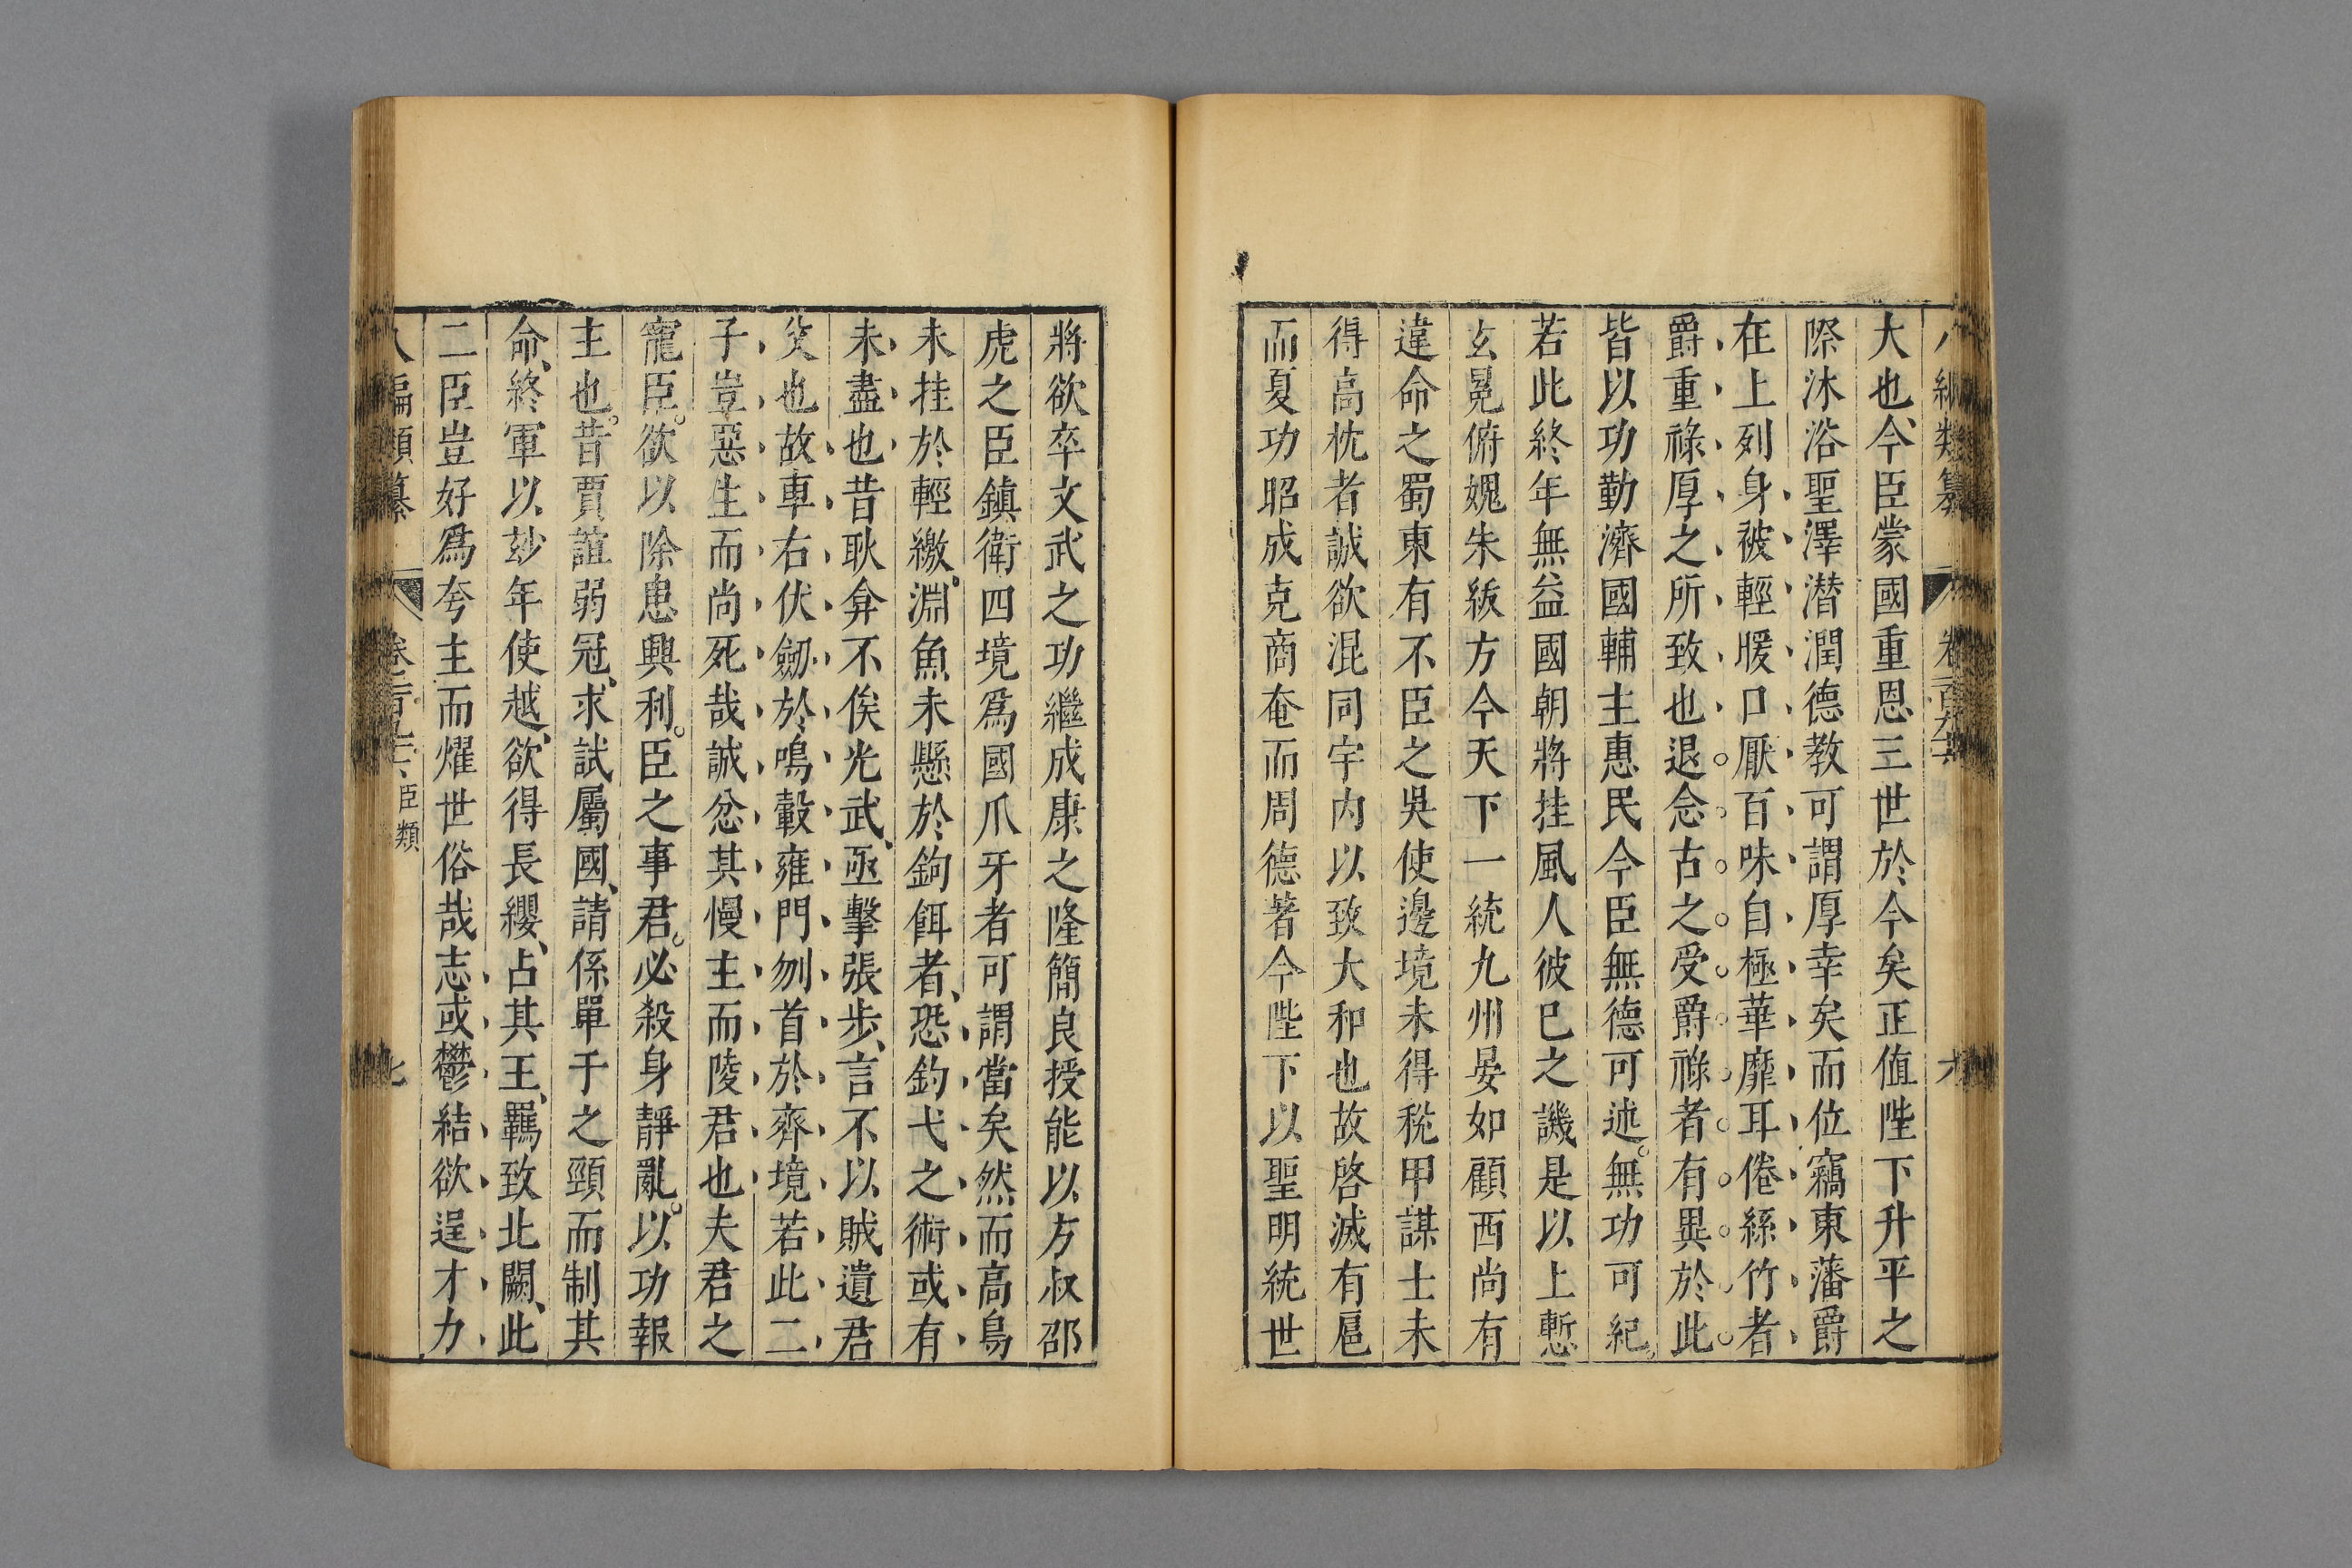 大也今臣蒙國重恩三世於今矣正值陛下升平之
際沐浴聖澤潜潤德教可謂厚幸矣而位竊東藩爵
在上列身被輕暖口厭百味自極華靡耳倦絲竹者
爵重祿厚之所致也退念古之受爵祿者有異於此
皆以功勤濟國輔主惠民今臣無德可述無功可紀
若此終年無益國朝將挂風人彼已之譏是以上慙
玄冕俯媿朱紱方今天下一統九州晏如顧西尚有
違命之蜀東有不臣之吳使邊境未得稅甲謀士未
得高枕者誠欲混同宇内以致大和也故啓滅有扈
而夏功昭成克商奄而周德著今陛下以聖明統世
將欲卒文武之功繼成康之隆簡良授能以方叔邵
虎之臣鎮衛四境爲國爪牙者可謂當矣然而高鳥
未挂於輕繳淵魚未懸於鉤餌者恐釣弋之術或有
未盡也昔耿弇不俟光武亟擊張步言不以賊遺君
父也故車右伏劒於鳴轂雍門刎首於齊境若此二
子豈惡生而尚死哉誠忿其慢主而陵君也夫君之
寵臣欲以除患興利臣之事君必殺身靜亂以功報
主也昔賈誼弱冠求試屬國請係單于之頸而制其
命終軍以玅年使越欲得長纓占其王羈致北闕此
二臣豈好爲夸主而燿世俗哉志或鬱結欲逞才力
編類纂
臣類